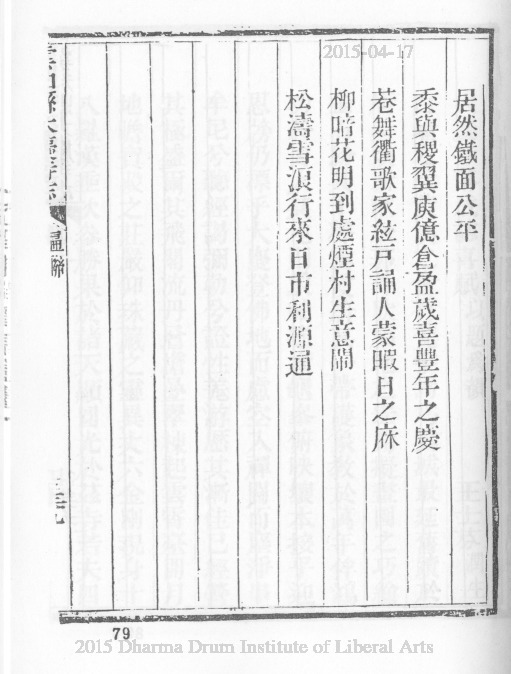 2015-04-17
居然鐵面公平
黍與稷翼庾億倉盈歲喜豐年之慶
巷舞衢歌家絃戶誦人蒙暇日之庥
柳暗花明到處煙村生意鬧
松濤雪浪行來百市利源通
楹聯
79
2015 Dharma Drum Institute of Liberal Arts